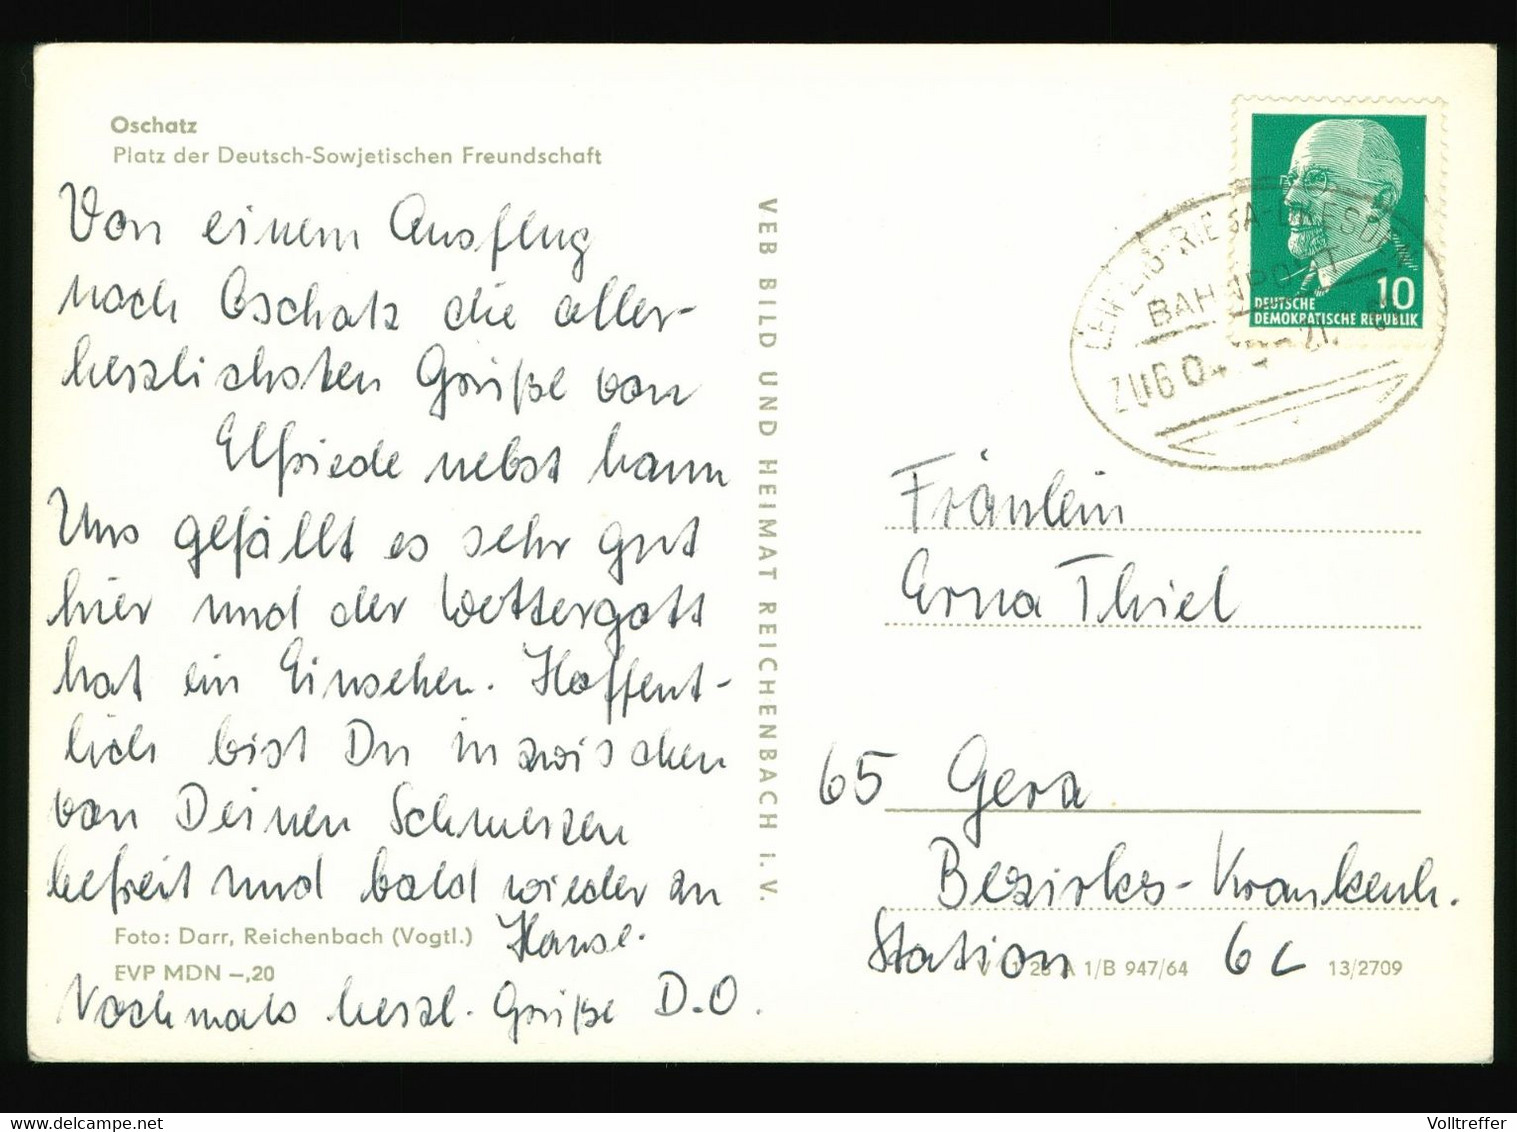 Oschatz
Platz der Deutsch-Sowjetischen Freundschaft
Von einem Ausflug
nach Oschatz die aller-
herzlichsten Grüße von
Elfriede nebst
Uns gefällt es sehr gut
hier und der Wettergott
hat ein Einsehen. Hoffent-
lich bist Du inzwischen
von Deinen Schmerzen
befreit und bald wieder zu
Hause.
Foto: Darr, Reichenbach (Vogtl.)
EVP MDN –,20
Nochmals herzl. Grüße D.O.
VEB BILD UND HEIMAT REICHENBACH I. V.
DEUTSCHE
DEMOKRATISCHE REPUBLIK
10
LEIPZIG-RIESA-DRESDEN
BAHNPOST
ZUG 21.
Fräulein
Erna Thiel
65 Gera
Bezirks-Krankenh.
Station 6c
A 1/B 947/64
13/2709
Volltreffer